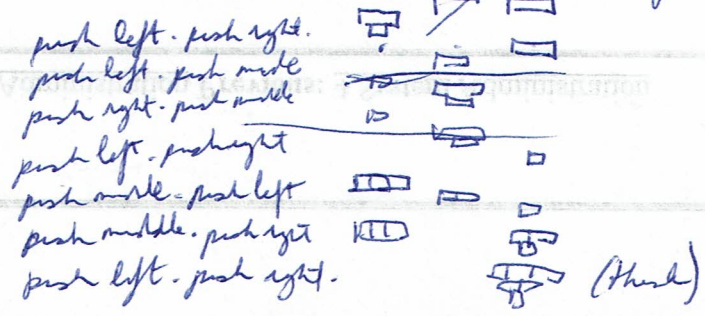 push left - push right.
push left - push middle
push right - push middle
push left - push right
push middle - push left
push middle - push right
push left - push right. (thesh)